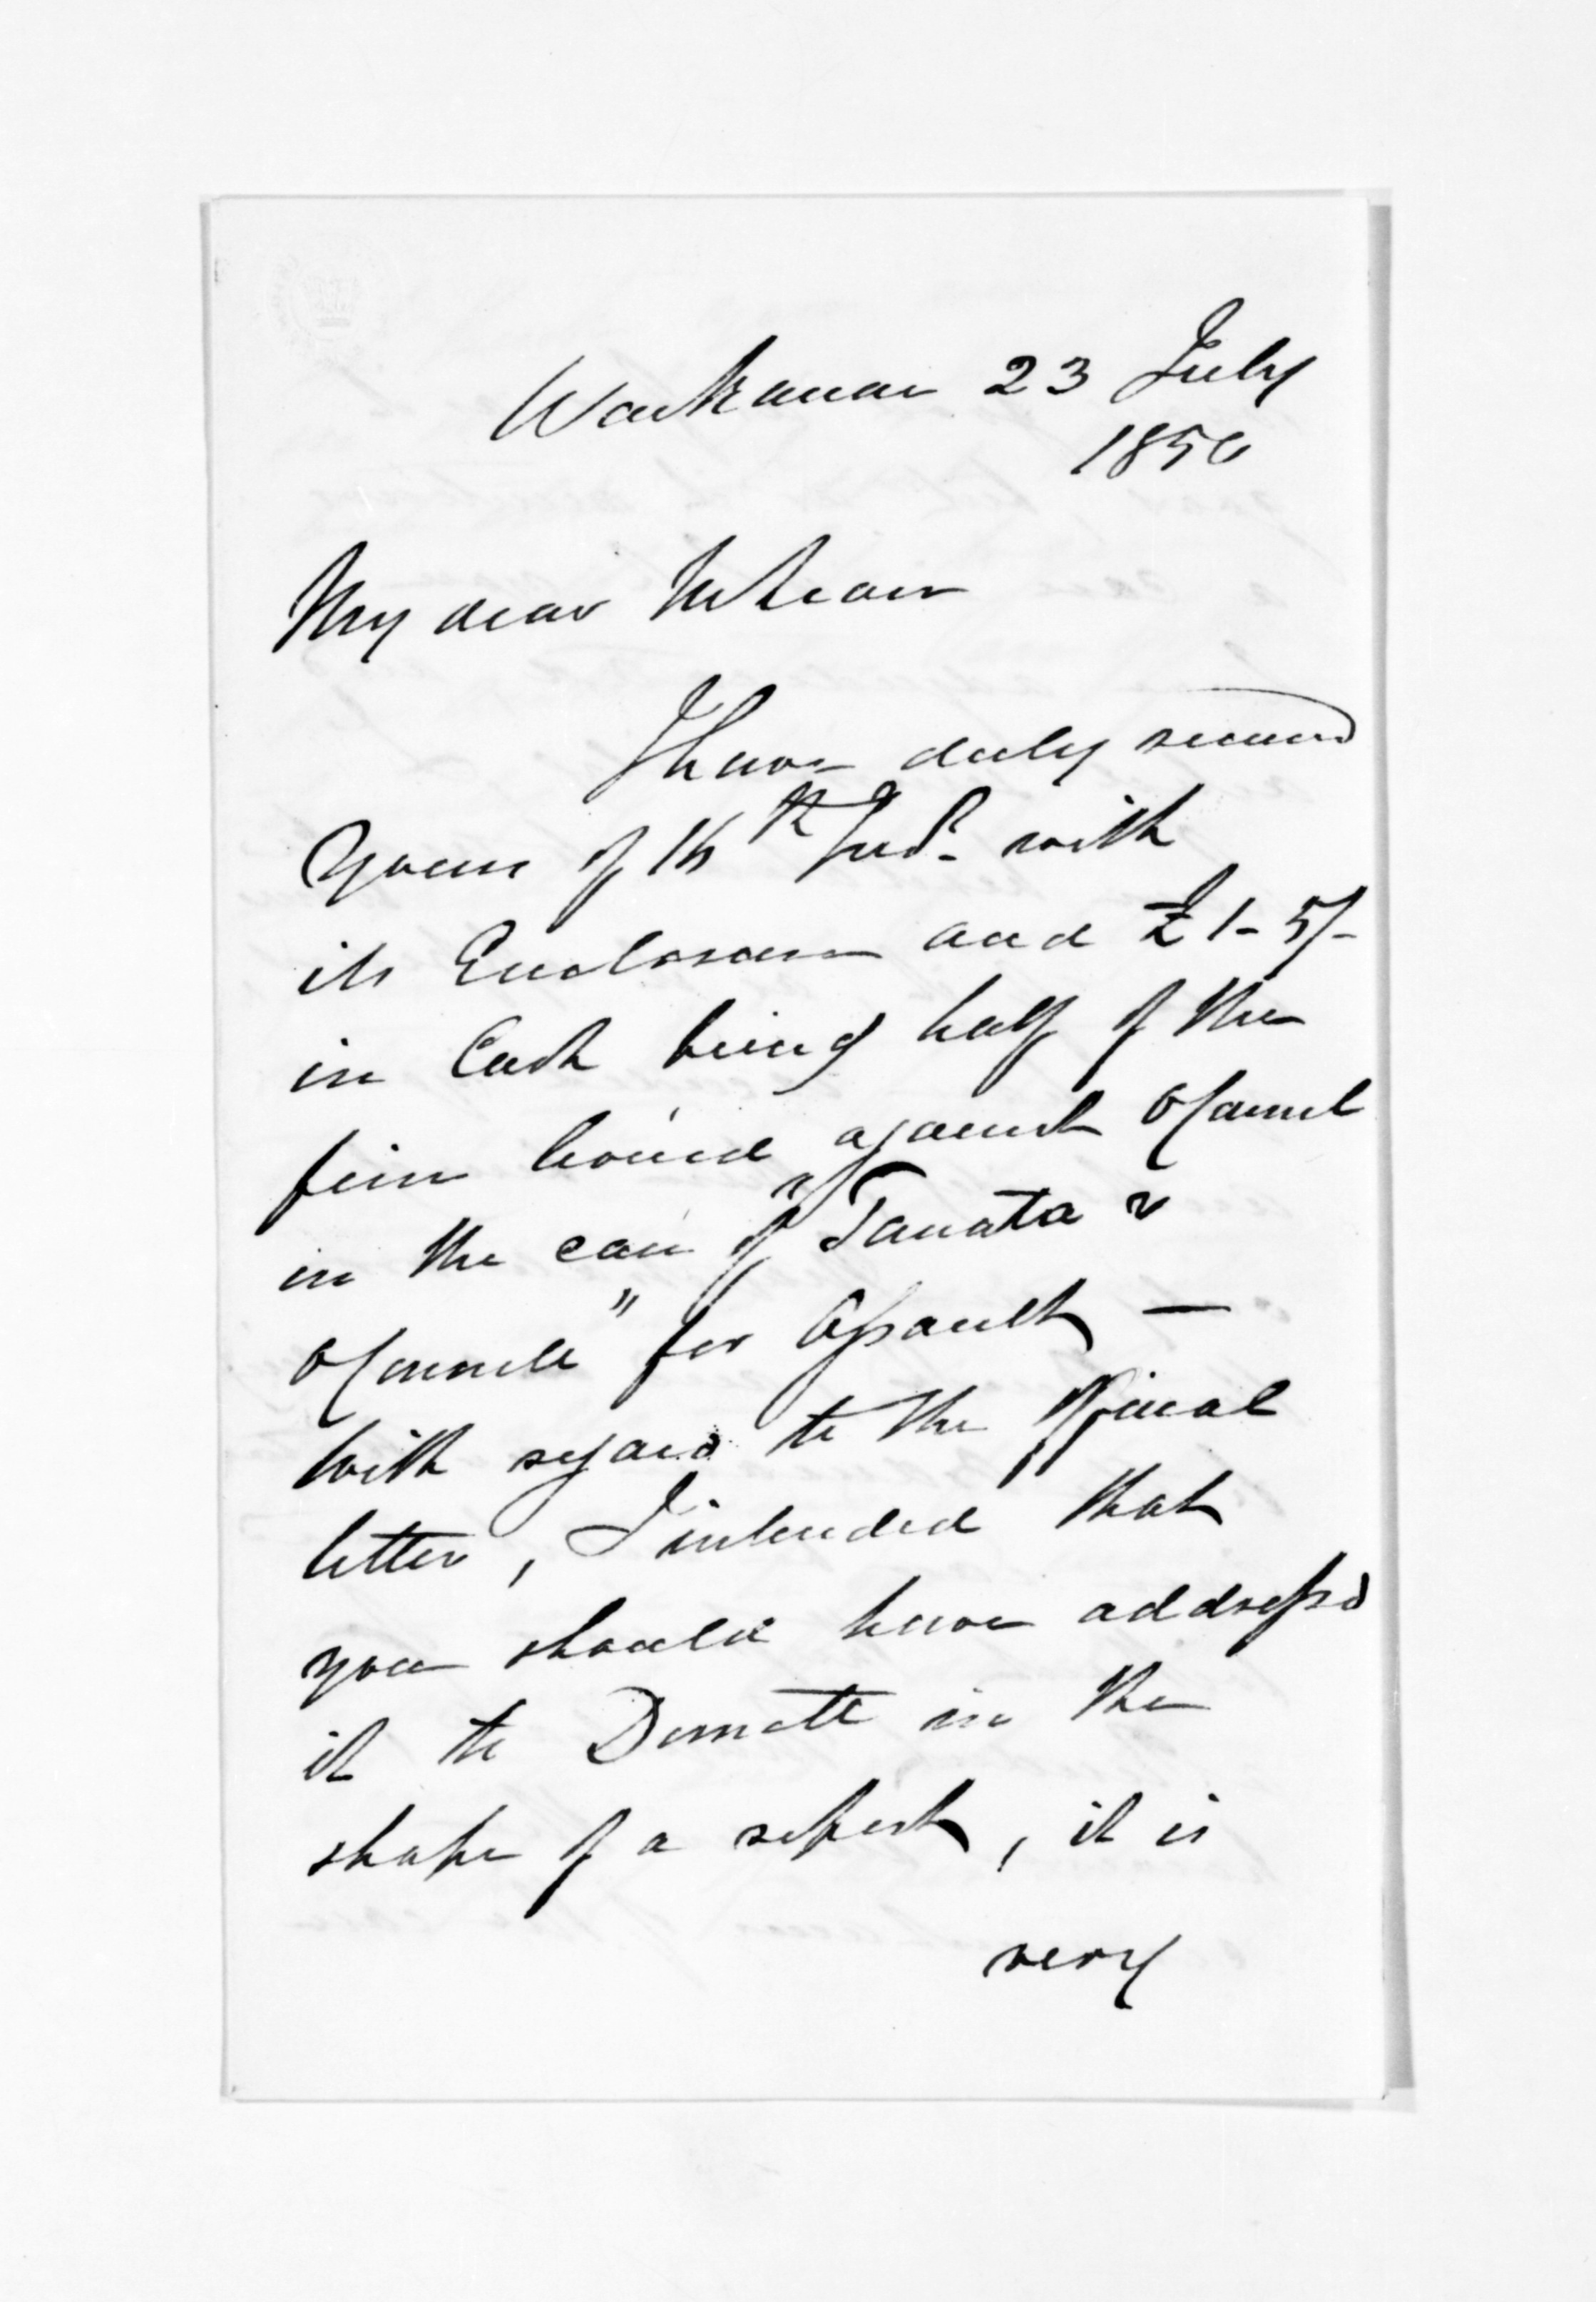 Waikanae 23 July
1856
My dear McLean
I have duly received
Yours of 16th Inst. with
its Enclosure and £1-5/-
in Cash being half of the
fine levied against
in the case of "Tamata v
" for Assault —
With regard to the official
letter, I intended that
you should have address'd
it to Domett in the
shape of a report, it is
very